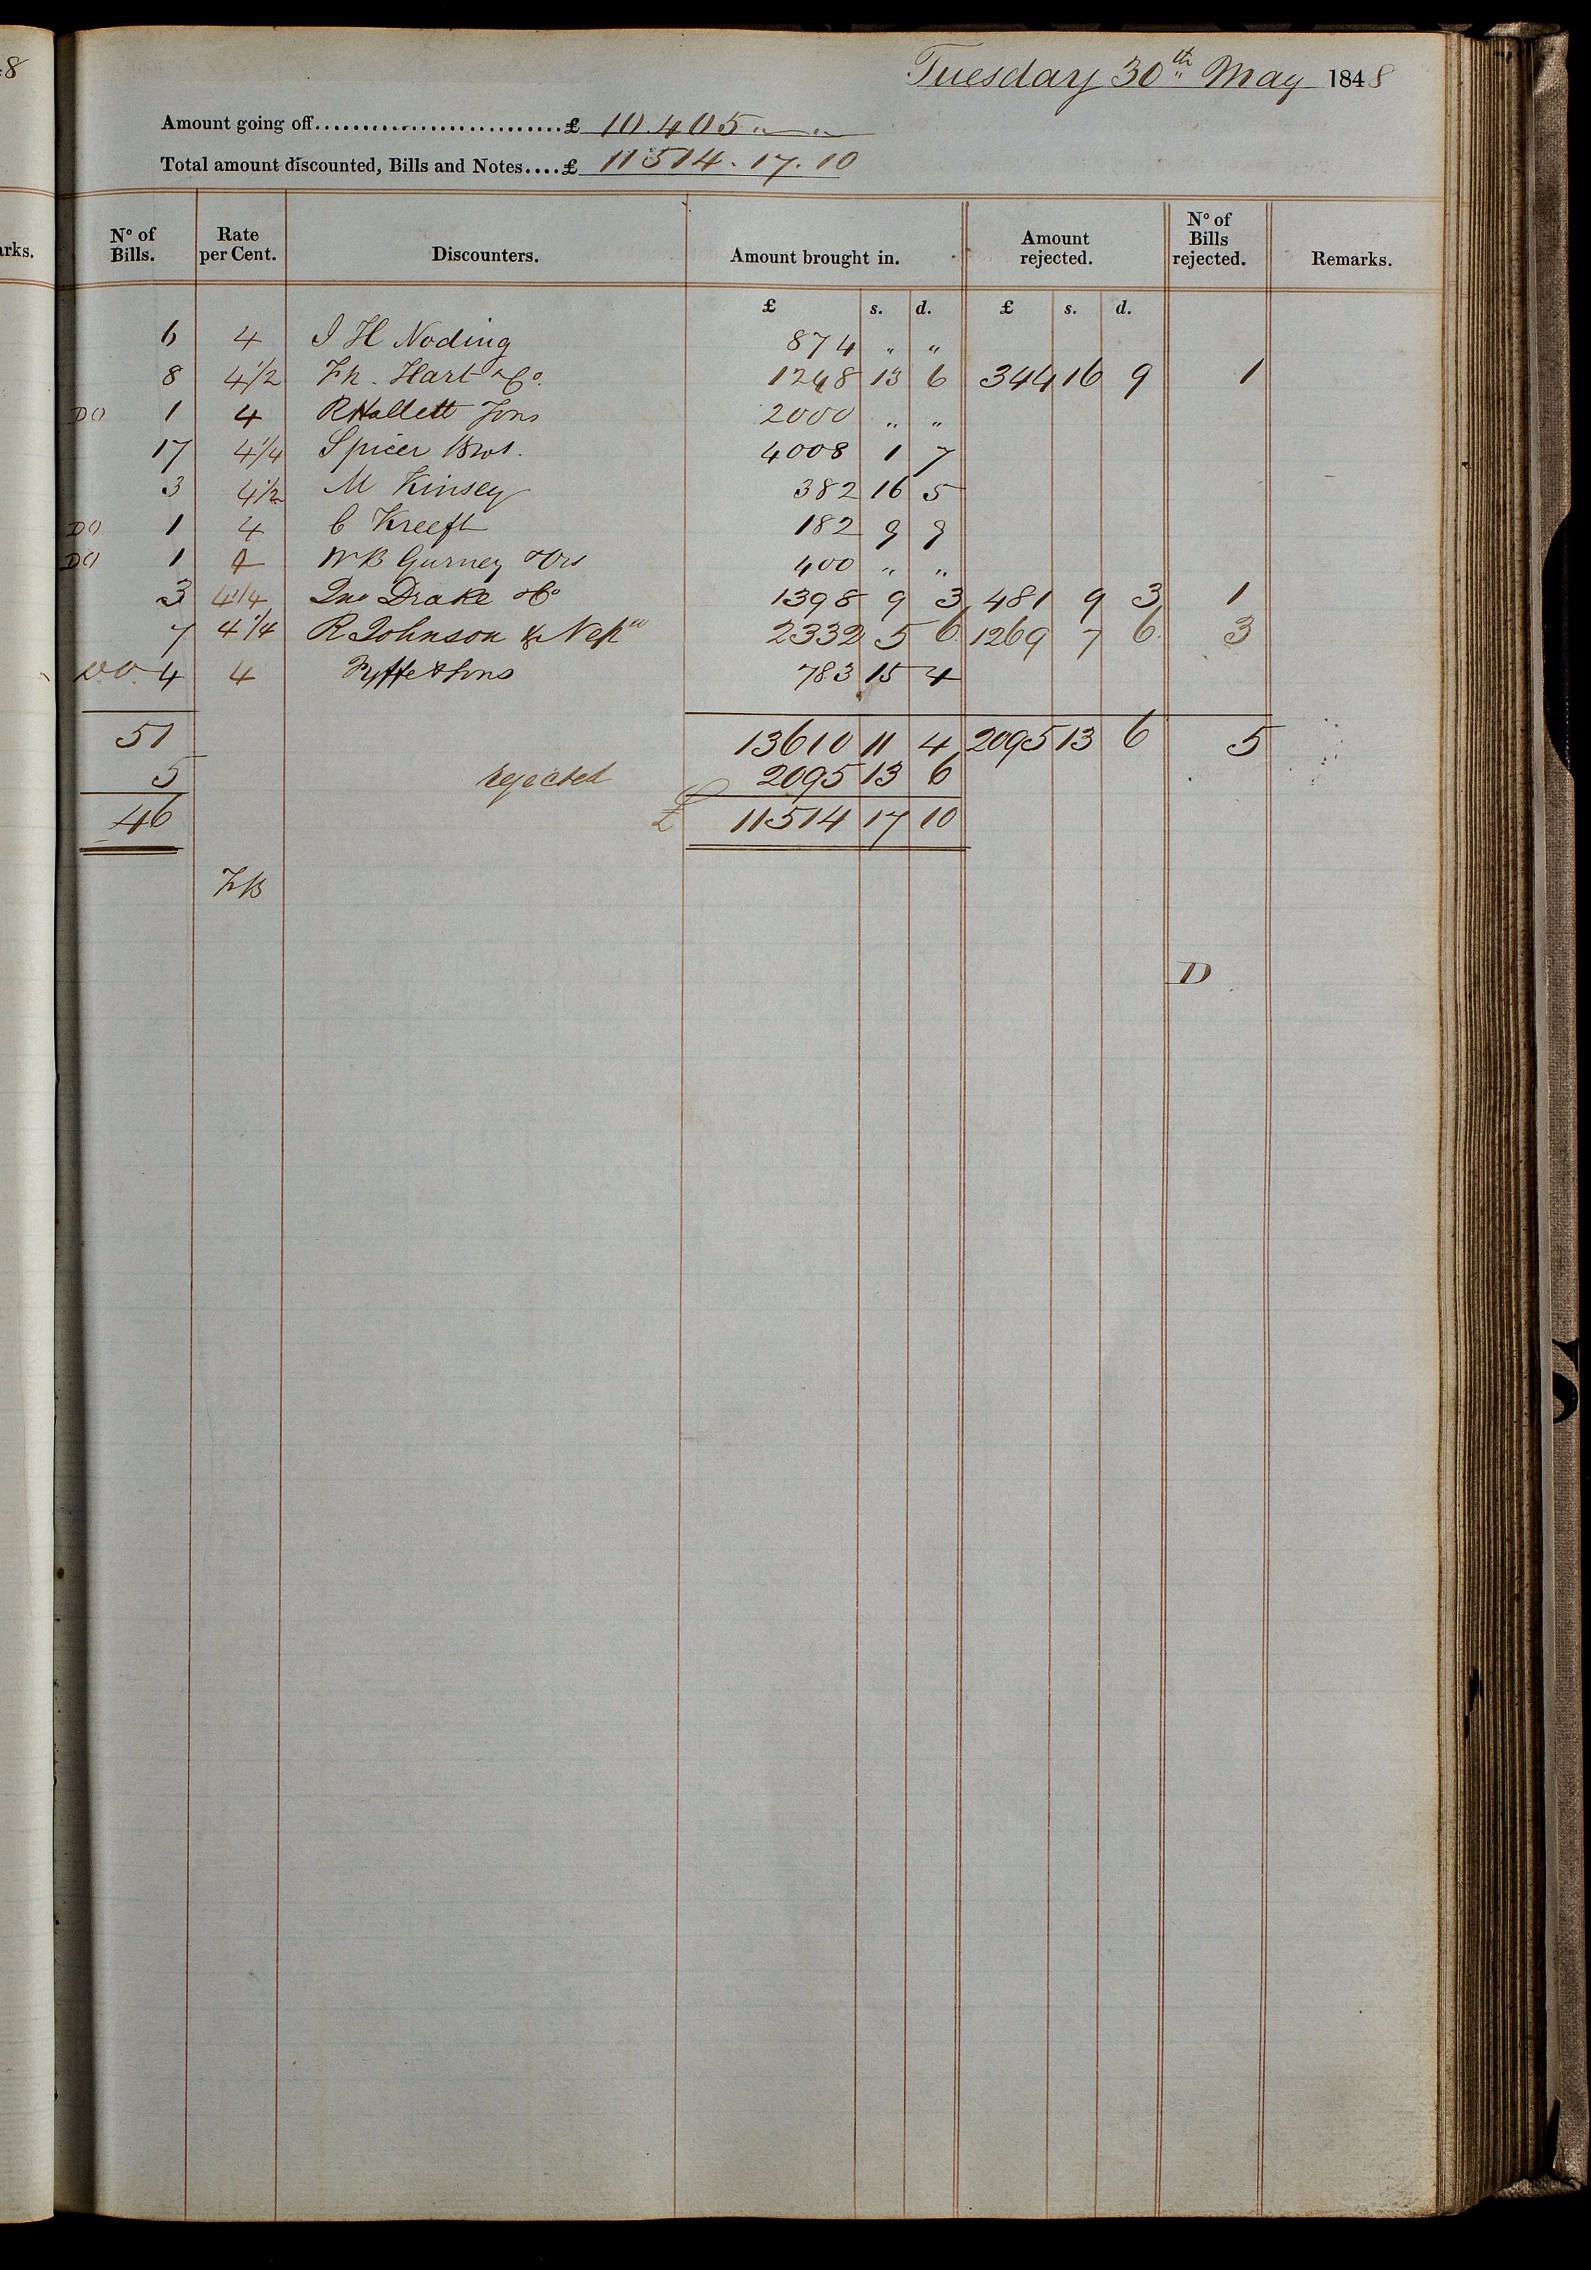 8
Tuesday 30th May 1848
Amount going off £ 10.405 " — "
Total amount discounted, Bills and Notes £ 11514 . 17 . 10
arks.
No of Bills. Rate per Cent. Discounters. Amount brought in. Amount rejected. No of Bills rejected. Remarks.
£ s. d. £ s. d.
6 4 J H Noding 874 " "
8 4 1/2 Hart & Co. 1248 13 6 344 16 9 1
DO 1 4 R Hallett Sons 2000 " "
17 4 1/4 Spicer Bros. 4008 1 7
3 4 1/2 M Kinsey 382 16 5
DO 1 4 C Kreeft 182 9 9
DO 1 4 W B Gurney 400 " "
3 4 1/4 Jno Drake & Co 1398 9 3 481 9 3 1
7 4 1/4 R Johnson & Nepw 2332 5 6 1269 7 6 3
DO 4 4 & Sons 783 15 4
51 13610 11 4 2095 13 6 5
5 rejected 2095 13 6
46 £ 11514 17 10
D